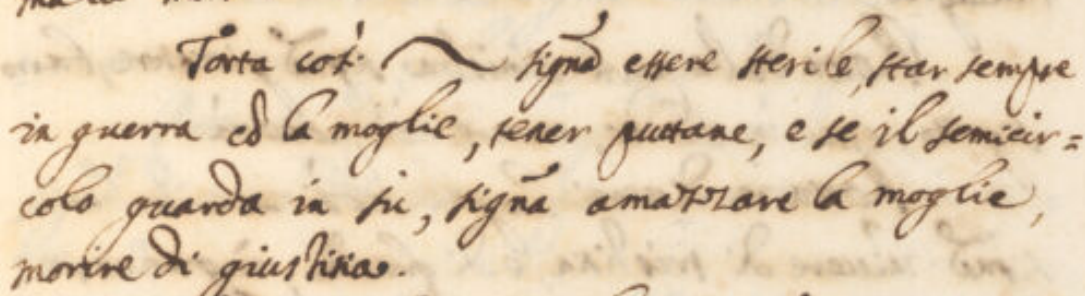 Torta così ~ signā essere sterile, star sempre
in guerra cō la moglie, tener puttane, e se il semicir=
colo guarda in su, signā amazzare la moglie,
morire di giustitia.